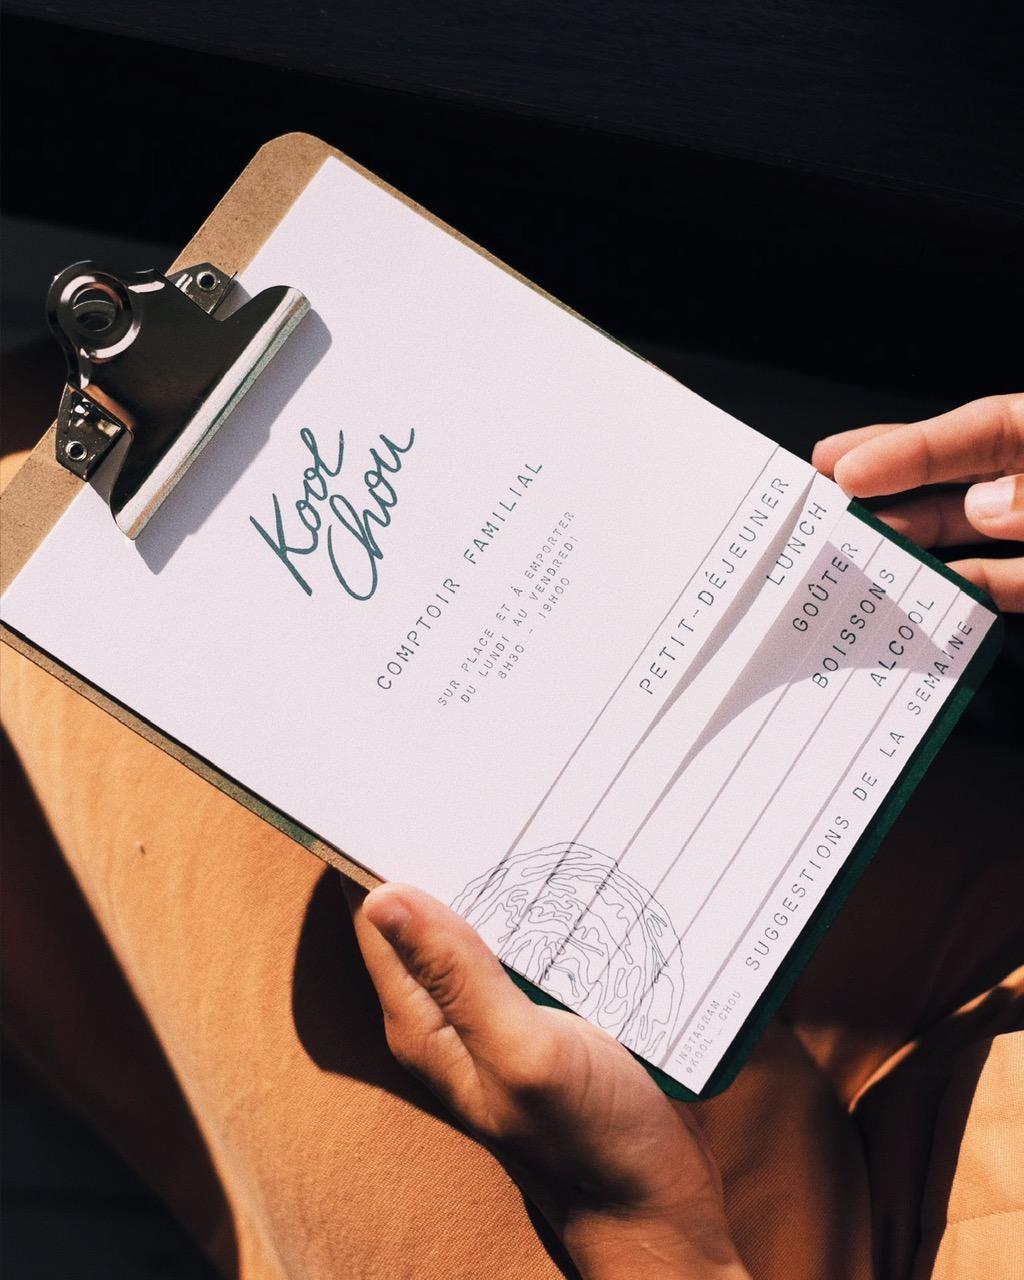 Kool
Chou
COMPTOIR FAMILIAL
SUR PLACE ET À EMPORTER
DU LUNDI AU VENDREDI
8H30 - 19H00
PETIT-DÉJEUNER
LUNCH
GOÛTER
BOISSONS
ALCOOL
SUGGESTIONS DE LA SEMAINE
INSTAGRAM
@KOOL_CHOU